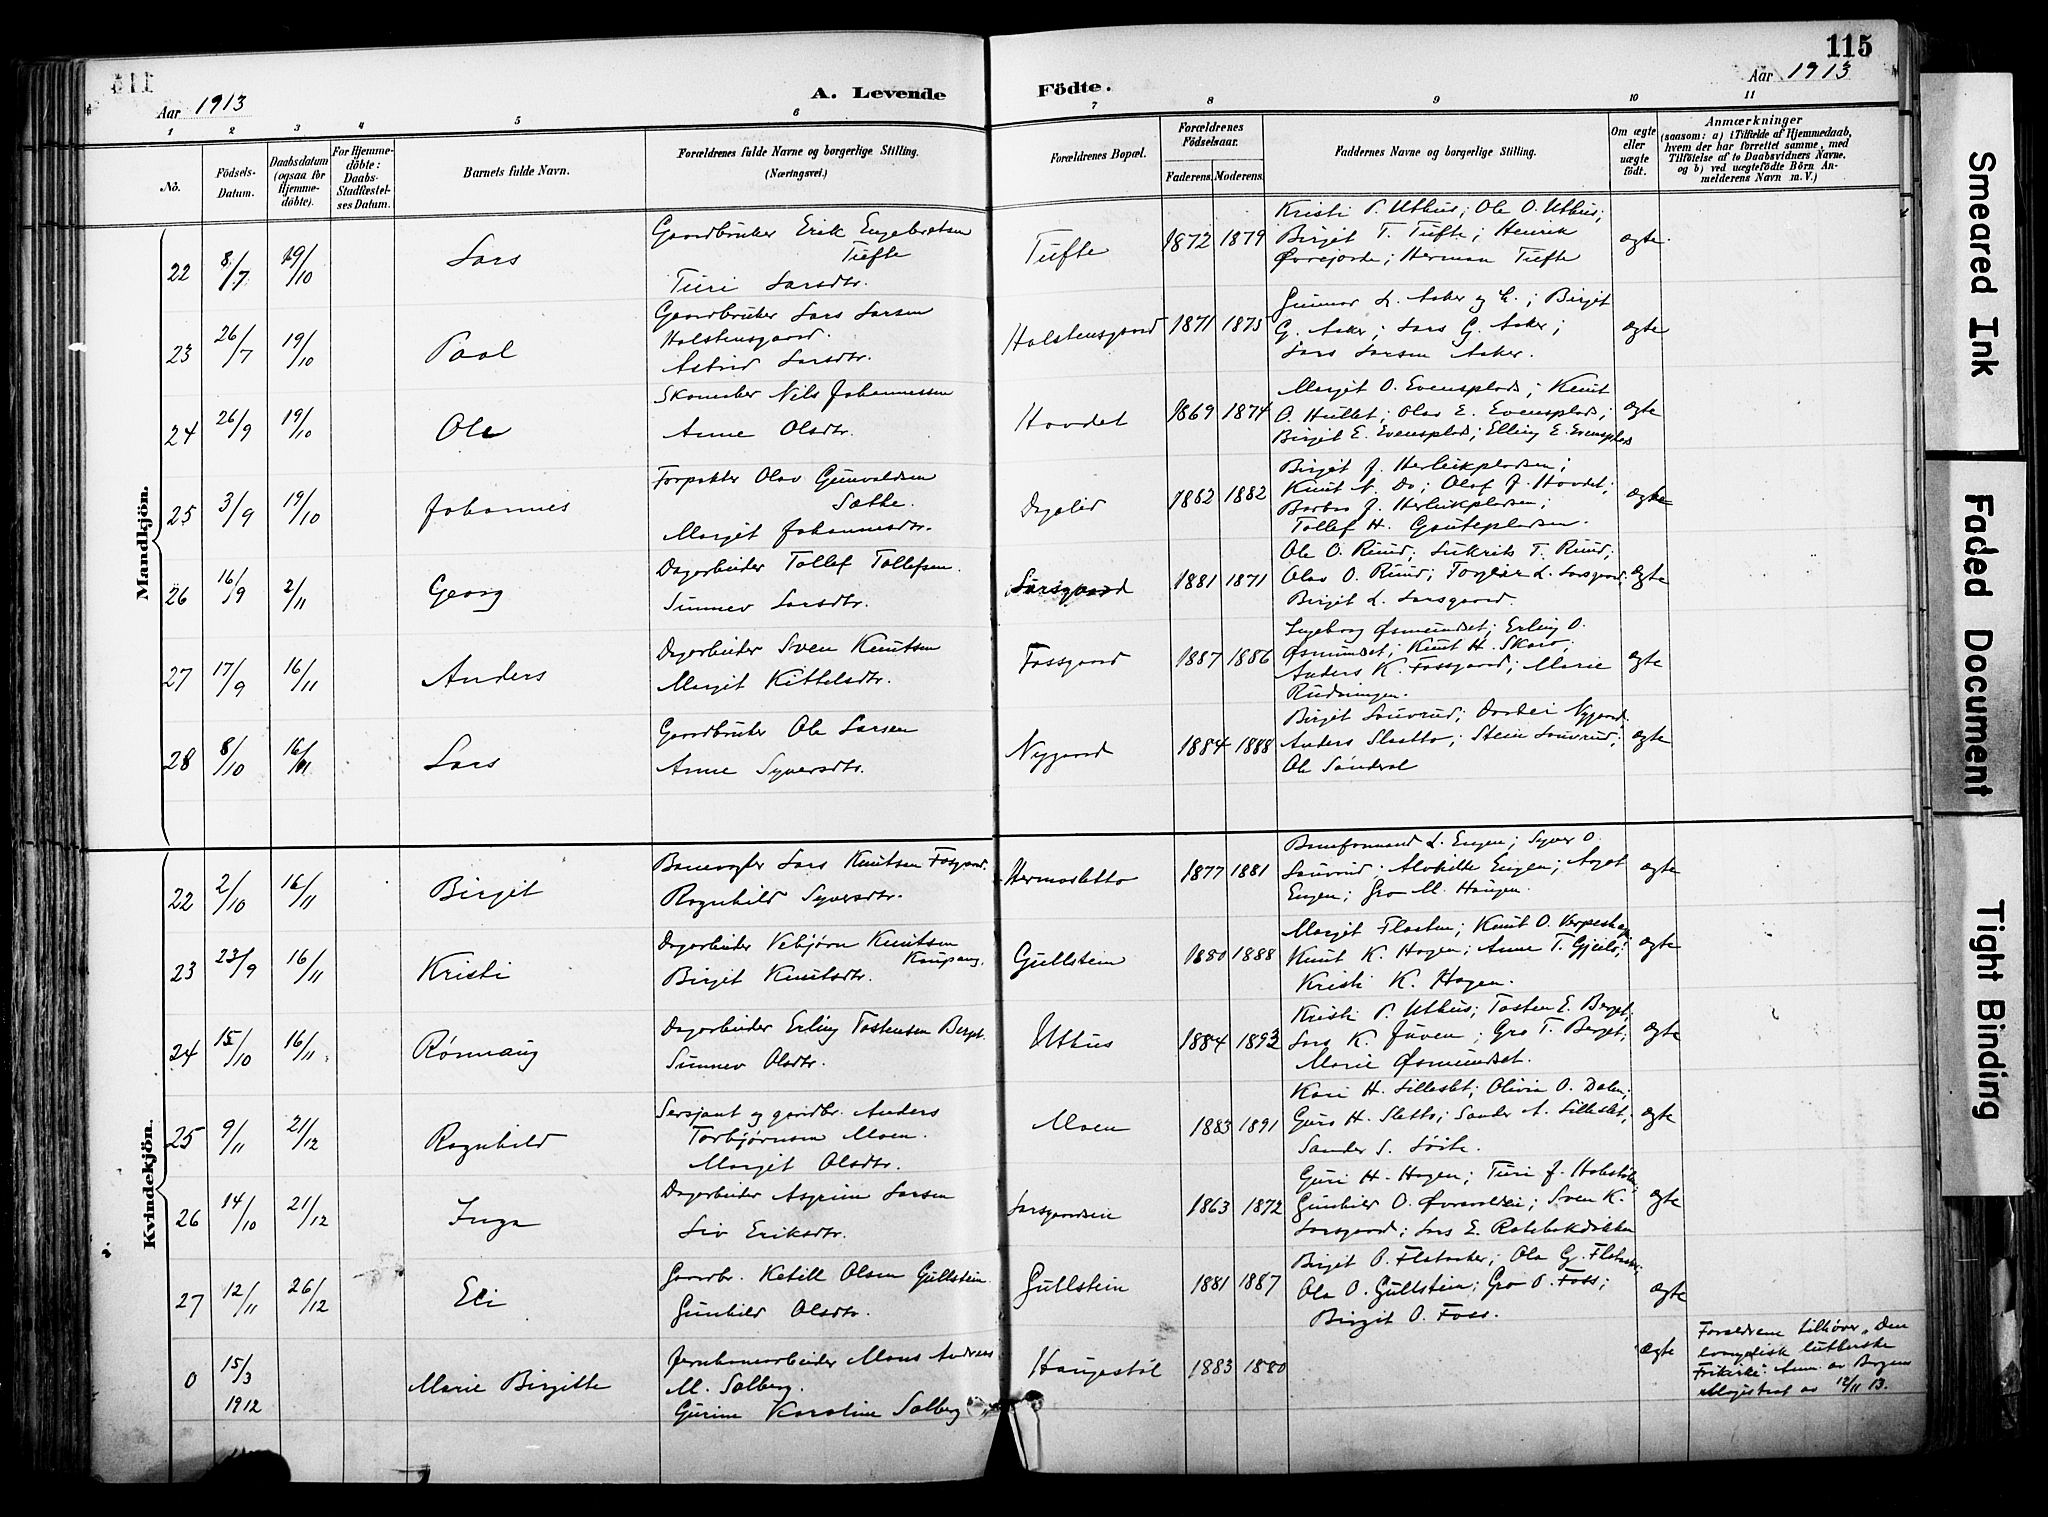 115
Aar 1913
A. Levende Födte.
Aar 1913
1 2 3 4 5 6 7 8 9 10 11
No.
Födsels-Datum.
Daabsdatum (ogsaa for Hjemme-döbte).
For Hjemme-döbte: Daabs-Stadfæstel-ses Datum.
Barnets fulde Navn.
Forældrenes fulde Navne og borgerlige Stilling. (Næringsvei.)
Forældrenes Bopæl.
Forældrenes Födselsaar.
Faderens. Moderens.
Faddernes Navne og borgerlige Stilling.
Om ægte eller uægte födt.
Anmærkninger
(saasom: a) i Tilfælde af Hjemmedaab, hvem der har forrettet samme, med Tilføielse af to Daabsvidners Navne, og b) ved uægtefödte Börn An-melderens Navn m. V.)
Mandkjön.
22 8/7 19/10 Lars
Gaardbruker Erik Engebretsen
Tufte
Turi Larsdtr.
Tufte 1872 1879
Kristi P. Uthus; Ole O. Uthus;
Birgit T. Tufte; Henrik
Øvrejorde; Herman Tufte
ægte
23 26/7 19/10 Paal
Gaardbruker Lars Larsen
Holstensgaard.
Astrid Larsdtr.
Holstensgaard 1871 1875
Gunnar L. Aaker og h.; Birgit
G. Aaker; Lars G. Aaker;
Lars Larsen Aaker.
ægte
24 26/9 19/10 Ole
Skomaker Nils Johannessen
Anne Olsdtr.
Hovdet 1869 1874
Margit O. Evensplads; Knut
O. Hullet; Olav E. Evensplads;
Birgit E. Evensplads; Elling E. Evensplads
ægte
25 3/9 19/10 Johannes
Forpakter Olav Gunvaldsen
Sæthe.
Margit Johannesdtr.
Dyolid 1882 1882
Birgit J. Herleikpladsen;
Knut N. Do; Olaf J. Hovdet;
Barbro J. Herleikpladsen;
Tollef H. Gauteplassen.
ægte
26 16/9 2/11 Georg
Dagarbeider Tollef Tollefsen.
Sunnev Larsdtr.
Larsgaard 1881 1871
Ole O. Ruud; Lukrits T. Ruud;
Olav O. Ruud; Torgeir L. Larsgaard
Birgit L. Larsgaard.
ægte
27 17/9 16/11 Anders
Dagarbeider Sven Knutsen
Margit Kittelsdtr.
Fossgaard 1887 1886
Ingeborg Øsmundset; Erling O.
Øsmundset; Knut H. Skaro;
Anders K. Fossgaard; Marie
Rudningen.
ægte
28 8/10 16/11 Lars
Gaardbruker Ole Larsen
Anne Syversdtr.
Nygaard 1884 1888
Birgit Lauvrud; Dordei Nygaard
Anders Slaatto; Stein Lauvrud;
Ole Sanderal
ægte
Kvindekjön.
22 2/10 16/11 Birgit
Banevogter Lars Knutsen Fosgaard.
Ragnhild Syversdtr.
Hermosletto 1877 1881
Bamfrommand L. Engen; Syver O.
Lauvrud; Alvhilde Engen; Aagot
Engen; Gro M. Haugen.
ægte
23 23/9 16/11 Kristi
Dagarbeider Vebjørn Knutsen
Kaupang.
Birgit Knutsdtr.
Gullstein 1880 1888
Margit Flaten; Knut O. Verpeskap
Knut K. Hagen; Anne T. Gjeilo;
Kristi K. Hagen.
ægte
24 15/10 16/11 Rønnaug
Dagarbeider Erling Tostensen Berget.
Sunnev Olsdtr.
Uthus 1884 1893
Kristi P. Uthus; Tosten E. Berget;
Lars K. Juven; Gro T. Berget;
Marie Øsmundset.
ægte
25 9/11 21/12 Ragnhild
Sersjant og gardbr. Anders
Torbjørnsen Moen.
Margit Olsdtr.
Moen 1883 1891
Kari H. Lilleslet; Olivia O. Dalen;
Guro H. Sletto; Sander A. Lilleslet,
Sander S. Søite.
ægte
26 14/10 21/12 Inga
Dagarbeider Asgrim Larsen
Liv Eriksdtr.
Larsgaardseie 1863 1872
Guri H. Hagen; Turi J. Holsteien;
Gunhild O. Øvrevoldei; Sven K.
Larsgaard; Lars E. Rotebakdokken
ægte
27 12/11 26/12 Eli
Gaardbr. Ketill Olsen Gullstein
Gunhild Olsdtr.
Gullstein 1881 1887
Birgit O. Flataaker; Ola G. Flataaker;
Ola O. Gullstein; Gro O. Foss;
Birgit O. Foss.
ægte
0 15/3 1912 Marie Birgitte
Jernbanearbeider Mons Andreas
M. Solberg.
Gurine Karoline Solberg
Haugestøl 1883 1880
ægte
Forældrene tilhører „Den
evangelisk lutherske
Frikirke. Anm. av Bergens
Magistrat av 12/11 13.
Smeared Ink
Faded Document
Tight Binding